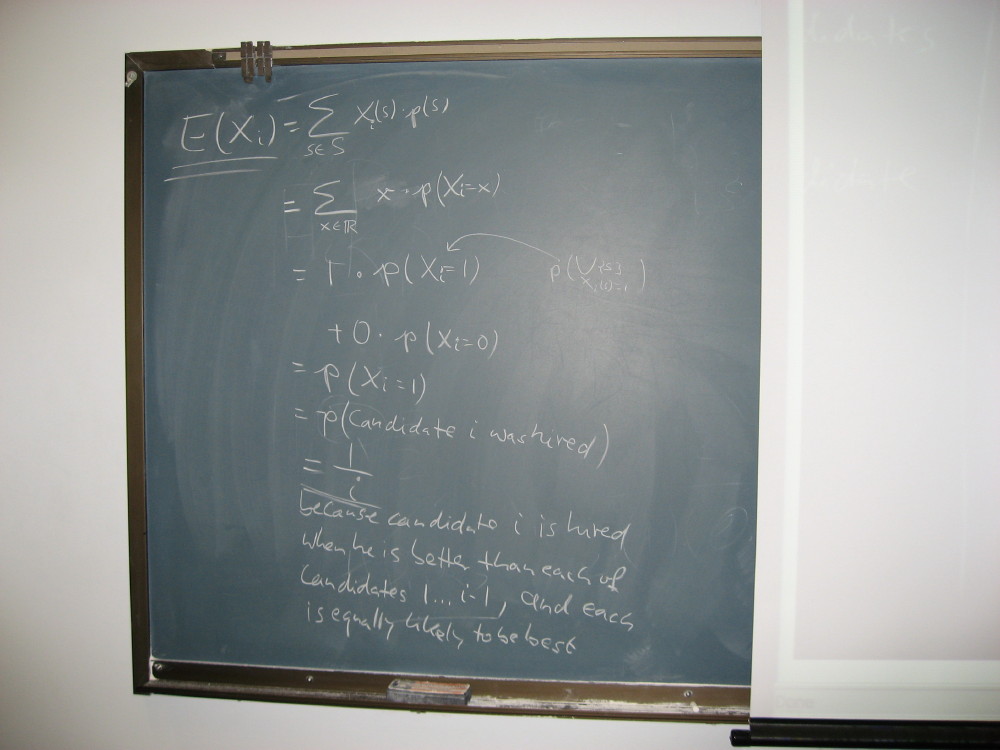 E(Xi) = ∑ Xi(s)·p(s)
s∈S
= ∑ x·p(Xi=x)
x∈ℝ
= 1·p(Xi=1)
+ 0·p(Xi=0)
= p(Xi=1)
= p(Candidate i was hired)
= 1/i
because candidate i is hired
when he is better than each of
candidates 1...i-1, and each
is equally likely to be best